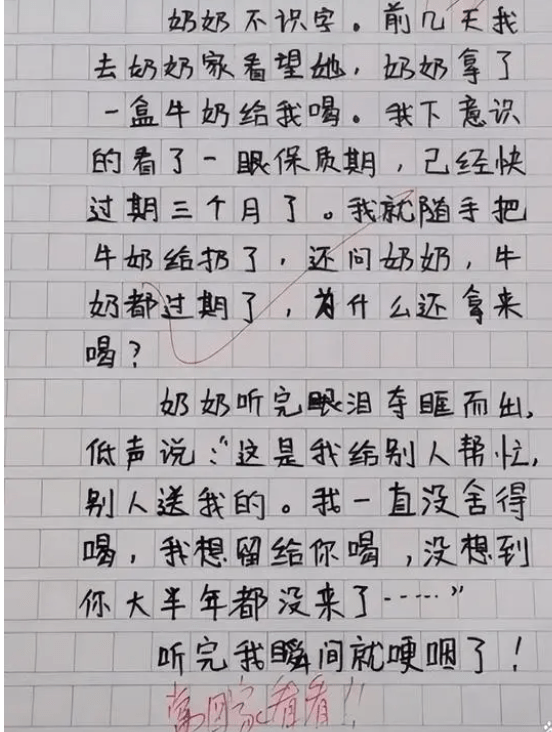 奶奶不识字。前几天我
去奶奶家看望她，奶奶拿了
一盒牛奶给我喝。我下意识
的看了一眼保质期，已经快
过期三个月了。我就随手把
牛奶给扔了，还问奶奶，牛
奶都过期了，为什么还拿来
喝？
奶奶听完眼泪夺眶而出，
低声说：“这是我给别人帮忙，
别人送我的。我一直没舍得
喝，我想留给你喝，没想到
你大半年都没来了……”
听完我瞬间就哽咽了！
常回家看看！！